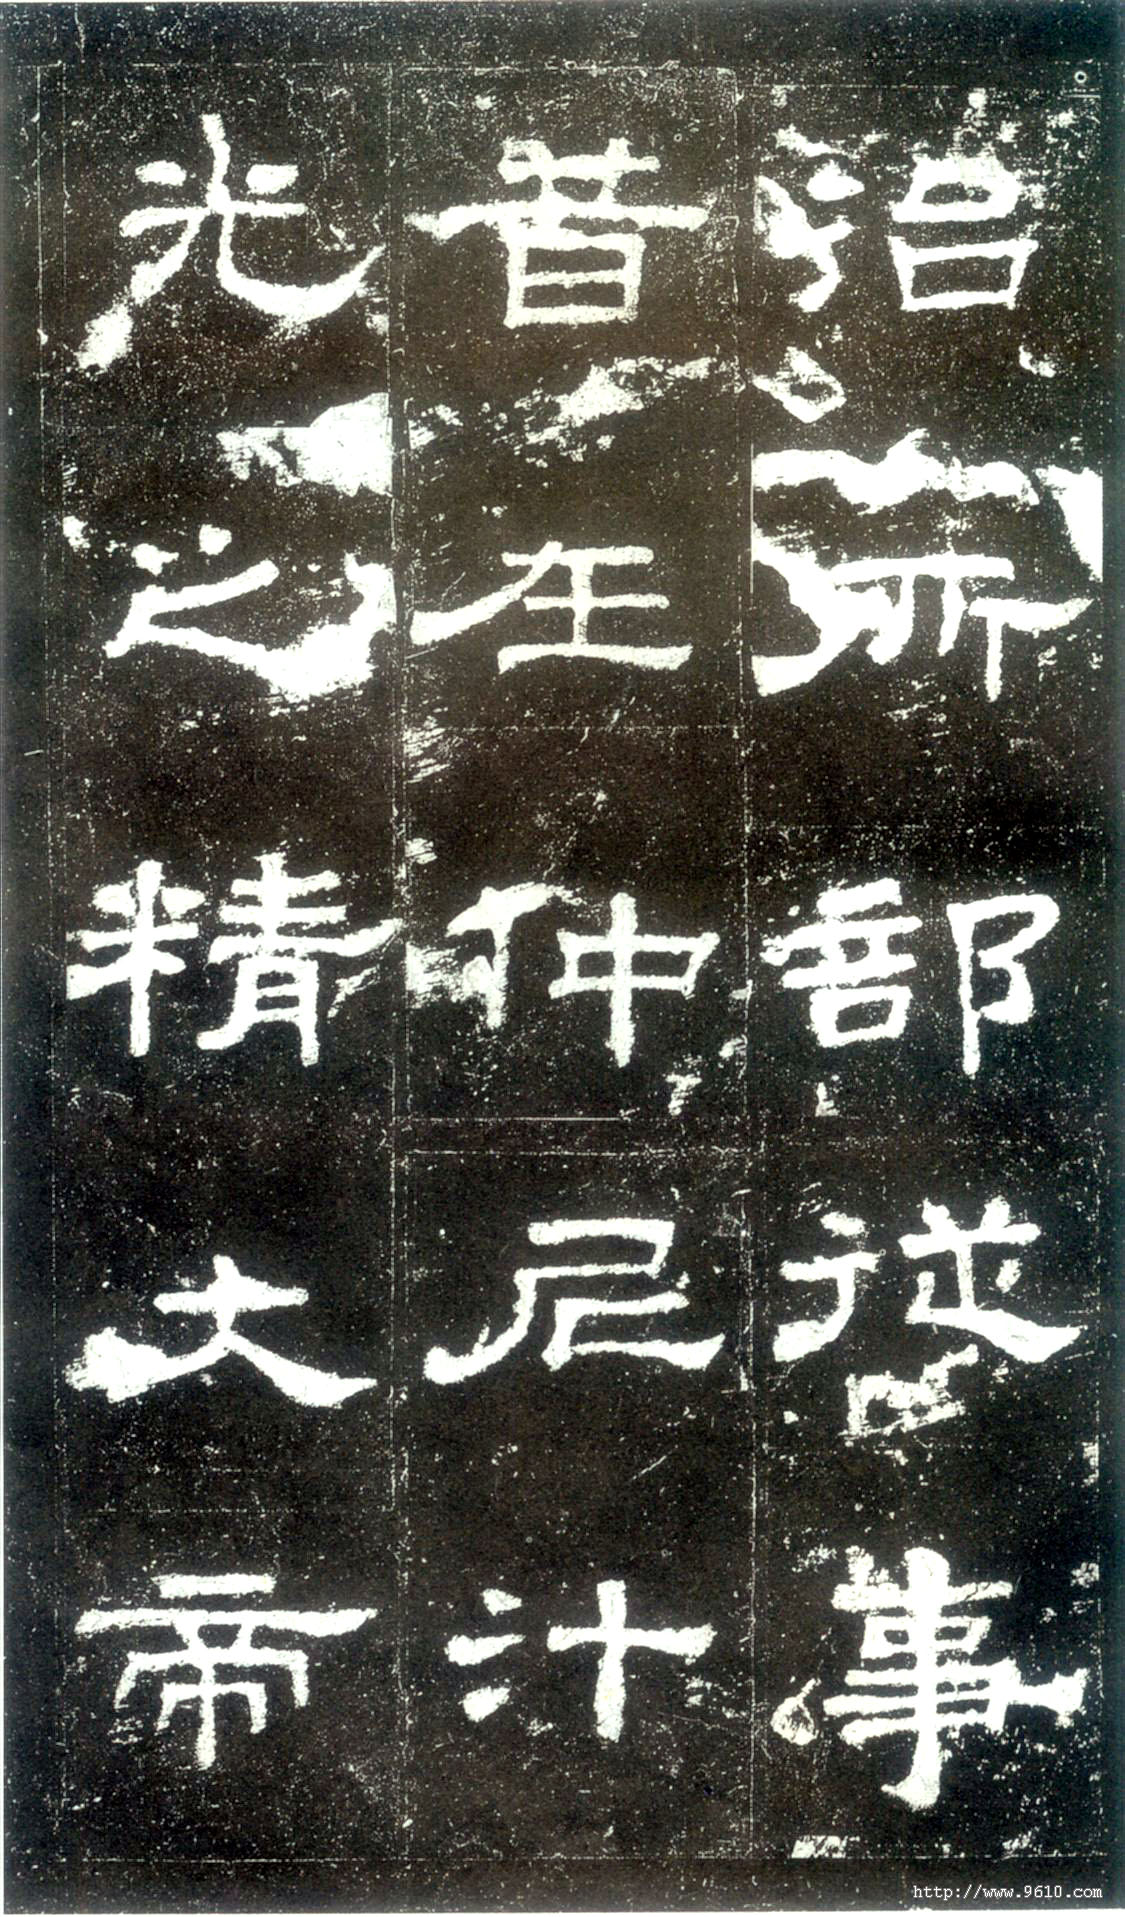 治所部從事
昔在仲尼汁
光之精大帝
http://www.9610.com